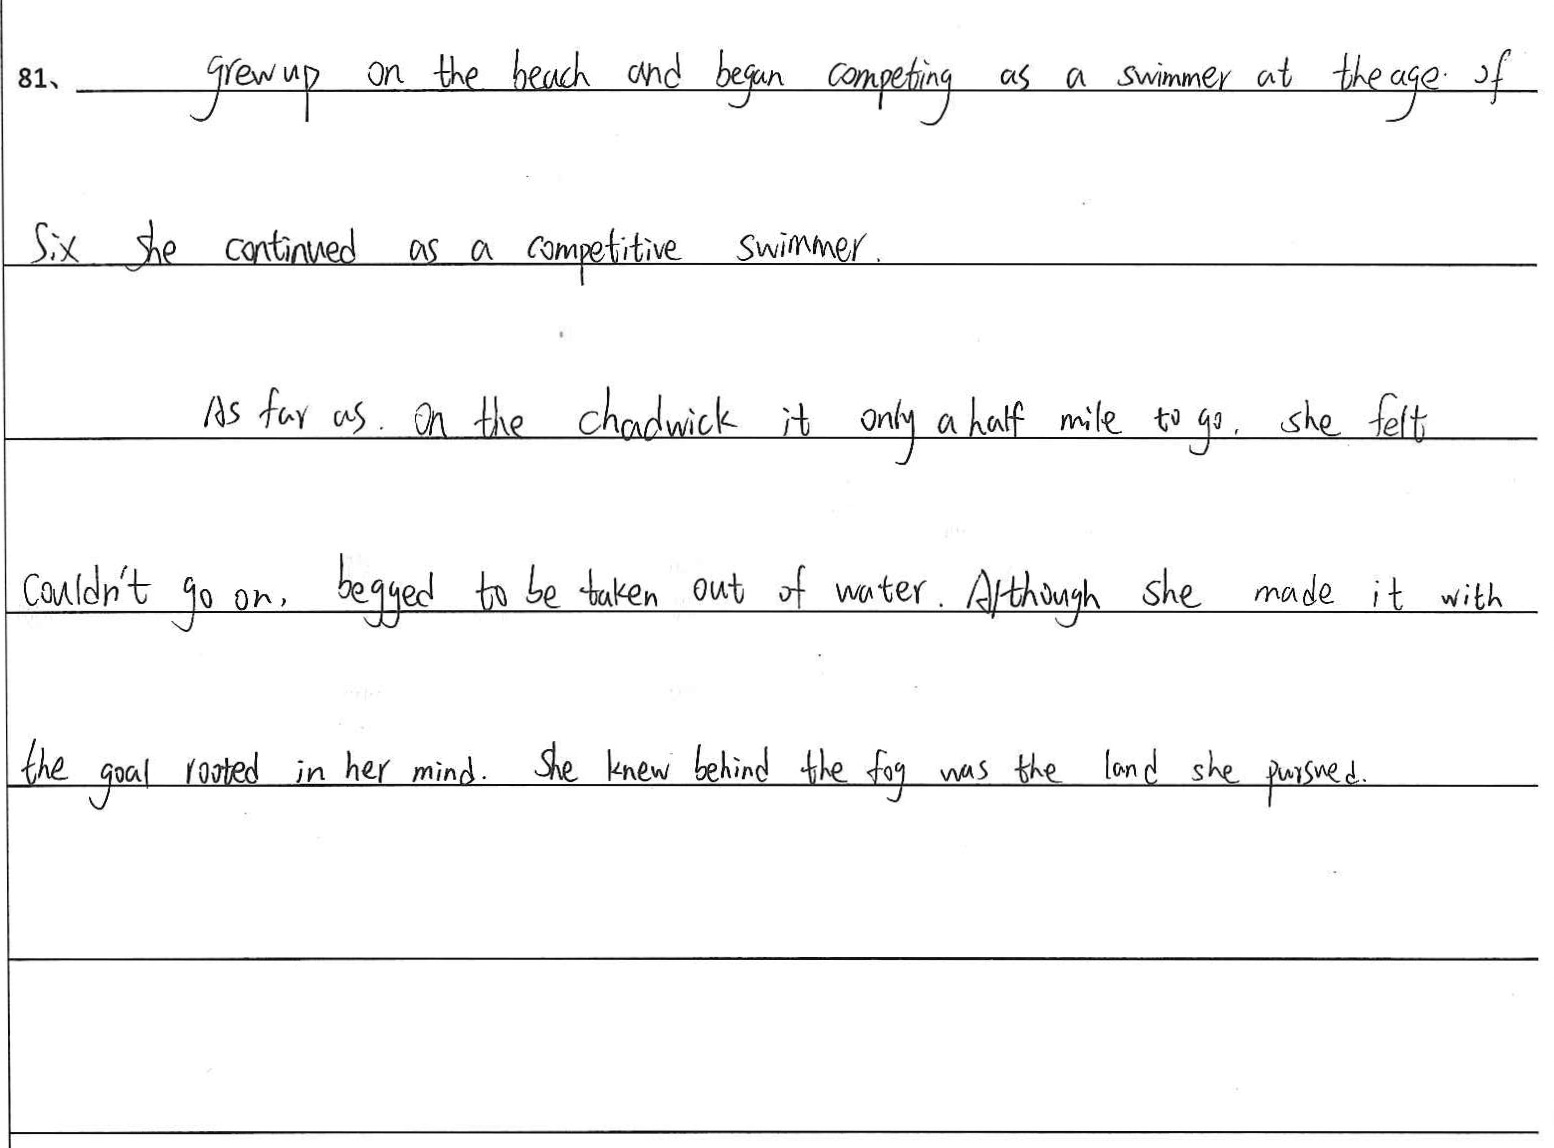 81、 grew up on the beach and began competing as a swimmer at the age. of
Six she continued as a competitive swimmer.
As far as. on the chadwick it only a half mile to go, she felt
couldn't go on, begged to be taken out of water. Although she made it with
the goal rooted in her mind. She knew behind the fog was the land she pursued.